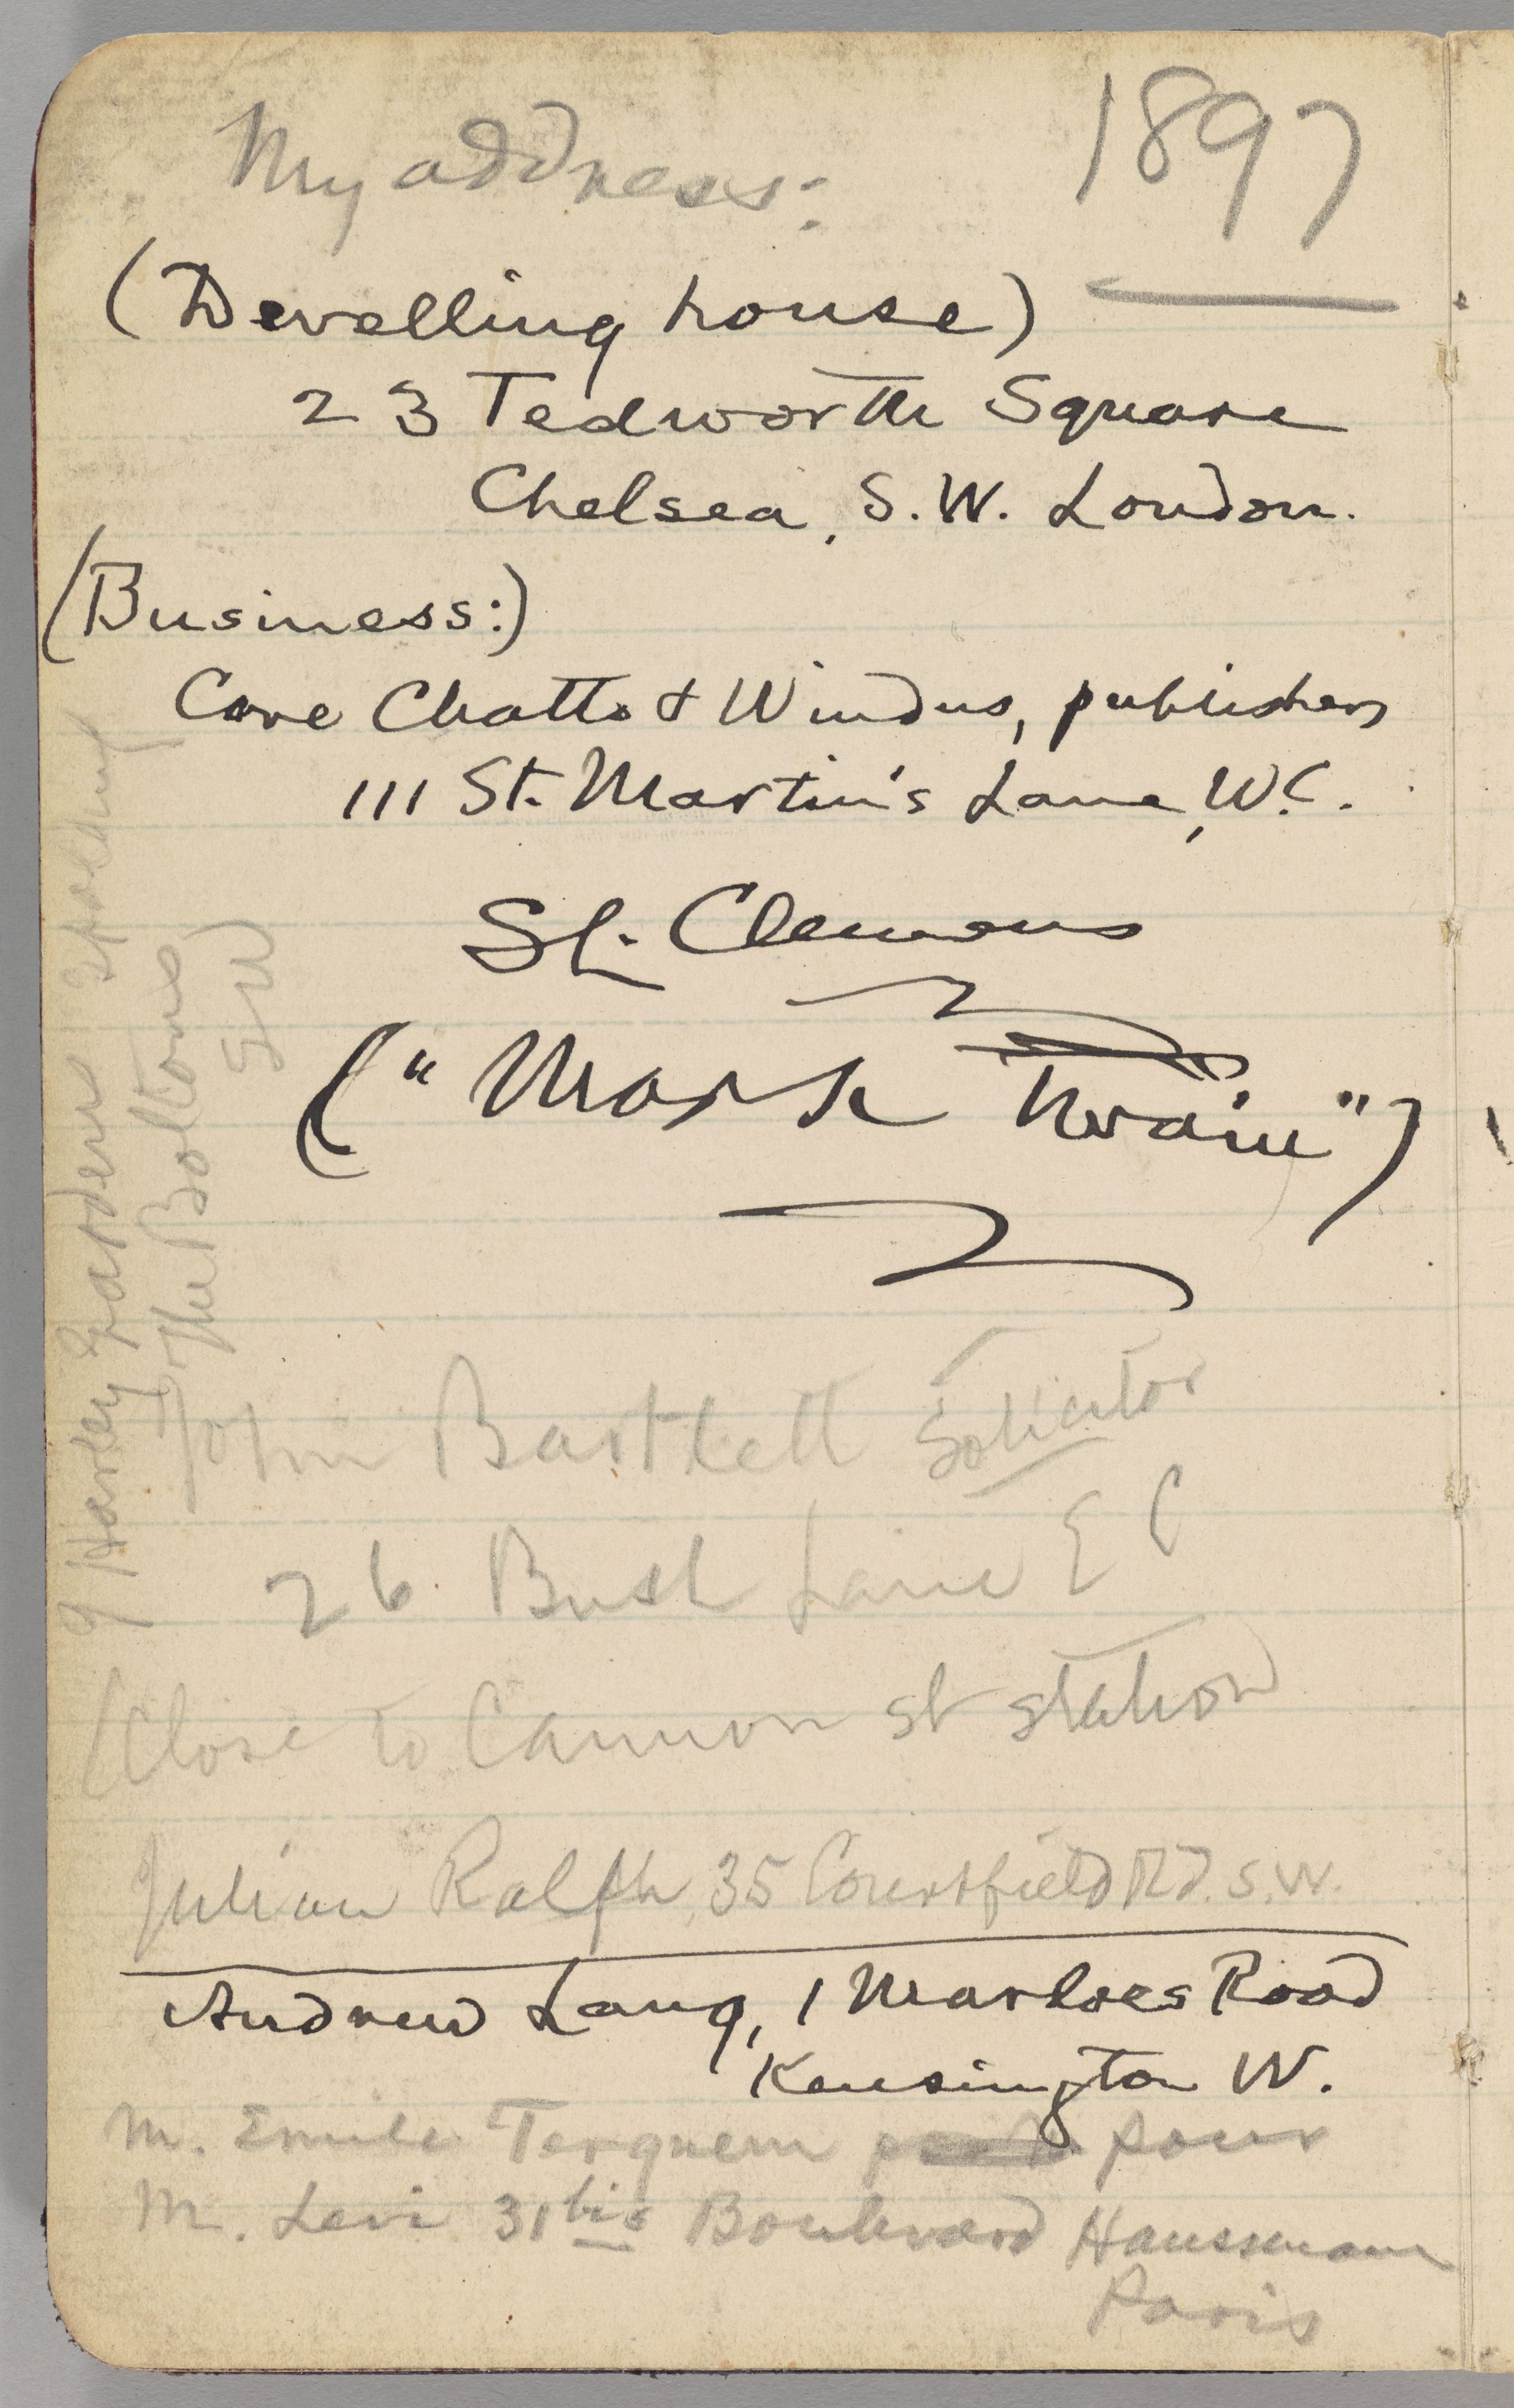 My address:
1897
(Dwelling house)
23 Tedworth Square
Chelsea, S.W. London.
(Business:)
Care Chatto & Windus, publishers
111 St. Martin's Lane, W.C.
SL. Clemens
("Mark Twain")
John Bartlett Solicitor
26. Bush Lane E C
(Close to Cannon st station
Julian Ralph, 35 Courtfield Rd. S.W.
Andrew Lang, 1 Marloes Road
Kensington W.
M. Emile Terquem pour
M. Levi 31 bis Boulevard Haussmann
Paris
9 Harley Gardens Spalding
The Boltons)
SW